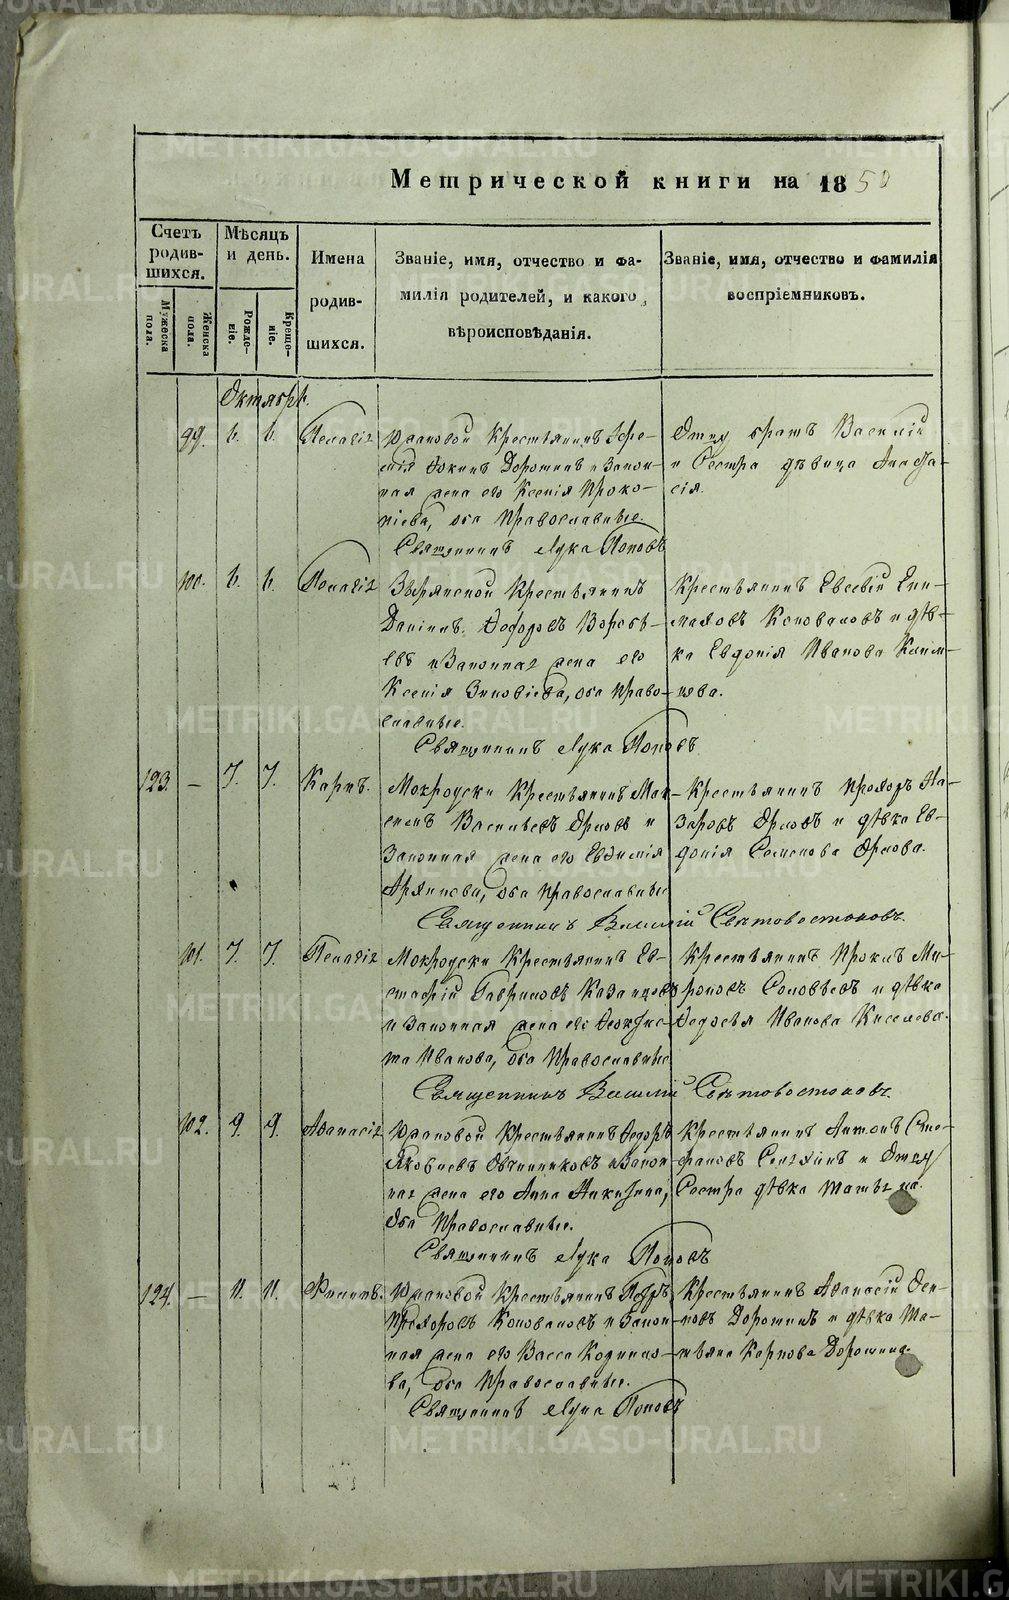 Метрической книги на 1850
Счетъ родившихся.
Мѣсяцъ и день.
Имена родившихся.
Званіе, имя, отчество и фамилія родителей, и какого вѣроисповѣданія.
Званіе, имя, отчество и фамилія воспріемниковъ.
Мужеска пола.
Женска пола.
Рожденіе.
Крещеніе.
Октябрь.
99. 6. 6. Пелагія
Крестьянинъ
Дорошинъ и Закон-
ная жена его Ксенія Проко-
піева, оба Православные.
Священникъ Лука Поповъ
Отцу братъ Василій
и Сестра дѣвица Анаста-
сія.
100. 6. 6. Пелагія
Крестьянинъ
Даніилъ Ѳедоровъ Воробь-
евъ и Законная жена его
Ксенія Зиновіева, оба Право-
славные.
Священникъ Лука Поповъ
Крестьянинъ Евсевій Епи-
маховъ Коноваловъ и дѣв-
ка Евдокія Иванова Клим-
цова.
123. — 7. 7. Карпъ.
Мокроуски Крестьянинъ Мак-
симъ Васильевъ Орловъ и
Законная жена его Евдокія
оба Православные
Священникъ Василій Свѣтовостоковъ.
Крестьянинъ Прохоръ На-
заровъ Орловъ и дѣвка Ев-
докія Семенова Орлова.
101. 7. 7. Пелагія
Мокроуски Крестьянинъ Ев-
стафій Гавриловъ Казанцовъ
и Законная жена его Ѳеоктис-
та Иванова, оба Православные
Священникъ Василій Свѣтовостоковъ.
Крестьянинъ Проклъ Ми-
роновъ Соловьевъ и дѣвка
Ѳедосья Иванова Киселева.
102. 9. 9. Аѳанасія
Крестьянинъ Ѳедоръ
Яковлевъ Овчинниковъ и Закон-
ная жена его Анна Никитина,
Оба Православные.
Священникъ Лука Поповъ
Крестьянинъ Антонъ Сте-
фановъ и Отцу
Сестра дѣвка Татьяна.
124. — 11. 11. Филипъ.
Крестьянинъ Петръ
Прохоровъ Коноваловъ и Закон-
ная жена его Васса
ва, оба Православные.
Священникъ Лука Поповъ
Крестьянинъ Аѳанасій
Дорошинъ и дѣвка Та-
тьяна Карпова Дорошина.
METRIKI.GASO-URAL.RU